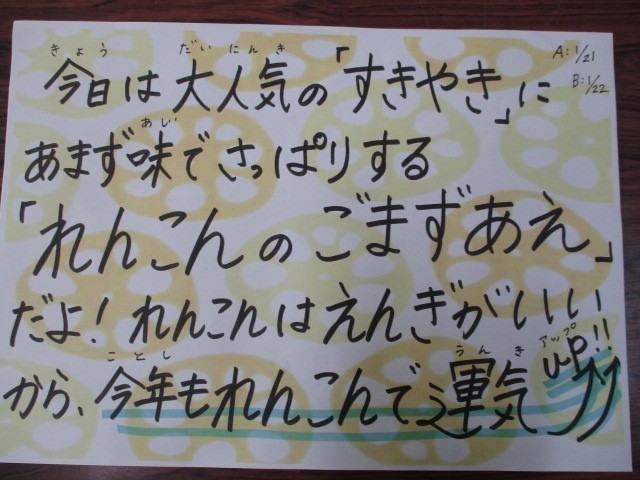 A:1/21
B:1/22
きょう だいにんき
今日は大人気の「すきやき」に
あじ
あまず味でさっぱりする
「れんこんのごまずあえ」
だよ!れんこんはえんぎがいい
ことし うんき アップ
から、今年もれんこんで運気up!!⤴⤴